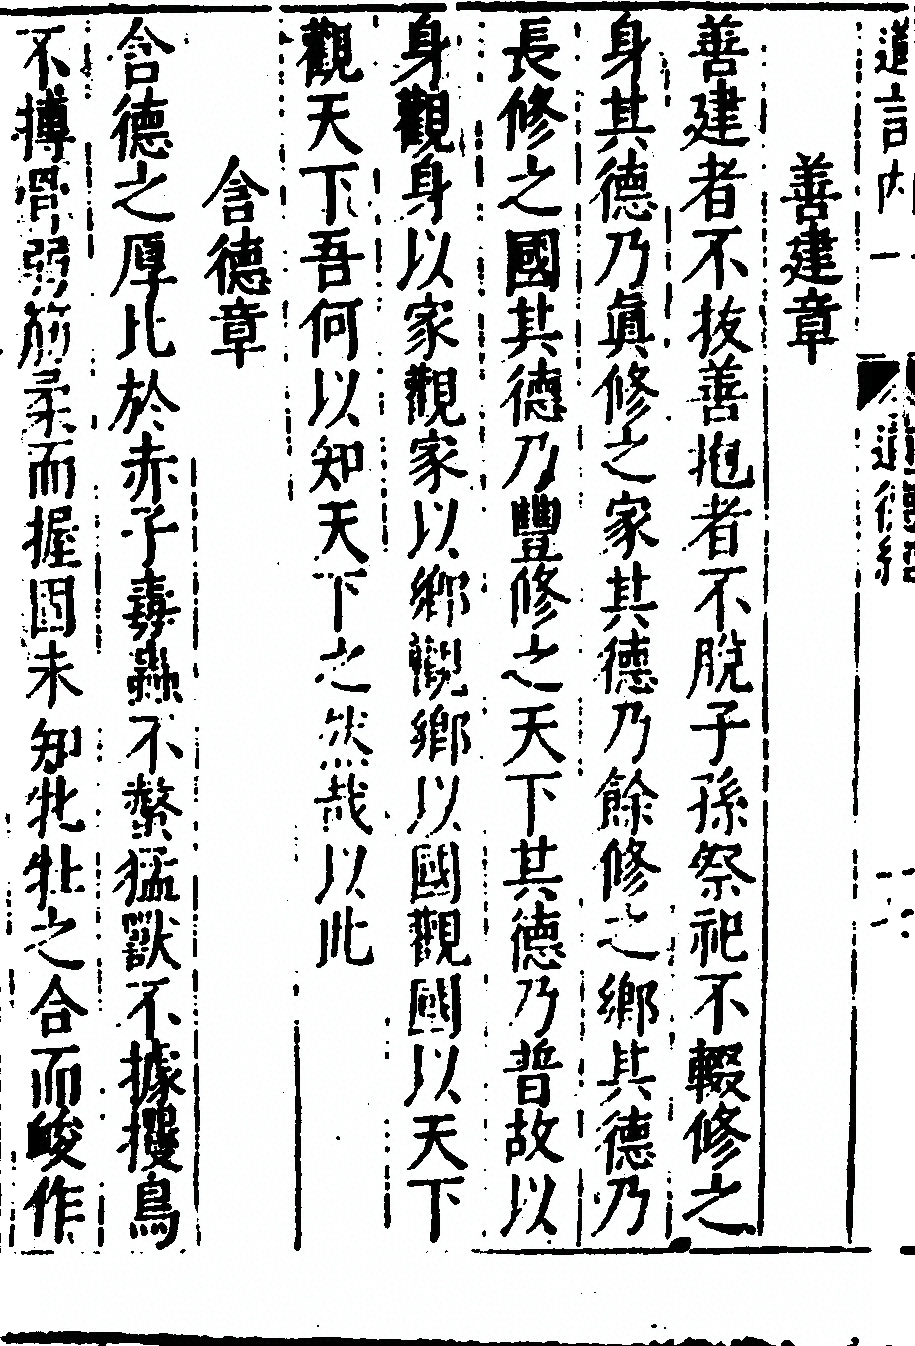 善建章
善建者不抜善抱者不脫子孫祭祀不輟修之
身其德乃眞修之家其德乃餘修之鄉其德乃
長修之國其德乃豐修之天下其德乃普故以
身觀身以家觀家以鄉觀鄉以國觀國以天下
觀天下吾何以知天下之然哉以此
含德章
含德之厚比於赤子毒蟲不螫猛獸不據攫鳥
不搏骨弱筋柔而握固未知牝牡之合而峻作